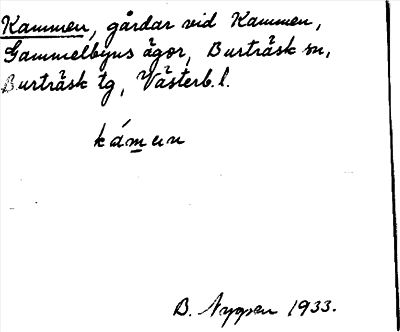 Kammen, gårdar vid Kammen,
Gammelbyns ägor, Burträsk sn,
Burträsk tg, Västerb. l.
kámen
B. Nygren 1933.